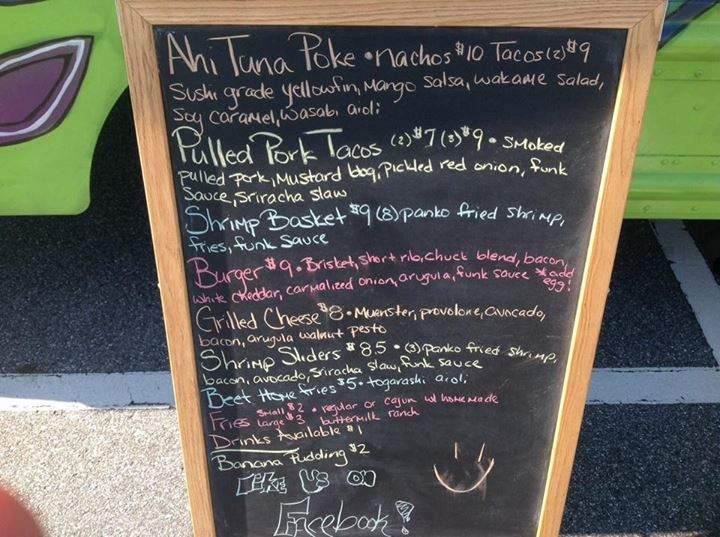 Ahi Tuna Poke • nachos $10 Tacos (2) $9
Sushi grade yellowfin, Mango Salsa, wakame Salad,
Soy Caramel, Wasabi aioli
Pulled Pork Tacos (2) $7 (3) $9 • Smoked
pulled pork, Mustard bbq, Pickled red onion, funk
Sauce, Sriracha slaw
Shrimp Basket $9 (8) panko fried Shrimp,
fries, funk Sauce
Burger $9 • Brisket, Short rib, Chuck blend, bacon,
white Cheddar, Carmalized onion, arugula, funk sauce * add egg!
Grilled Cheese $8 • Muenster, provolone, avacado,
bacon, arugula walnut pesto
Shrimp Sliders $8.5 • (3) panko fried Shrimp,
bacon, avocado, Sriracha Slaw, funk Sauce
Beet Home fries $5 • togarashi aioli
Fries Small $2 • regular or cajun w/ homemade
large $3 buttermilk ranch
Drinks Available $1
Banana Pudding $2
LIKE US ON
Facebook!